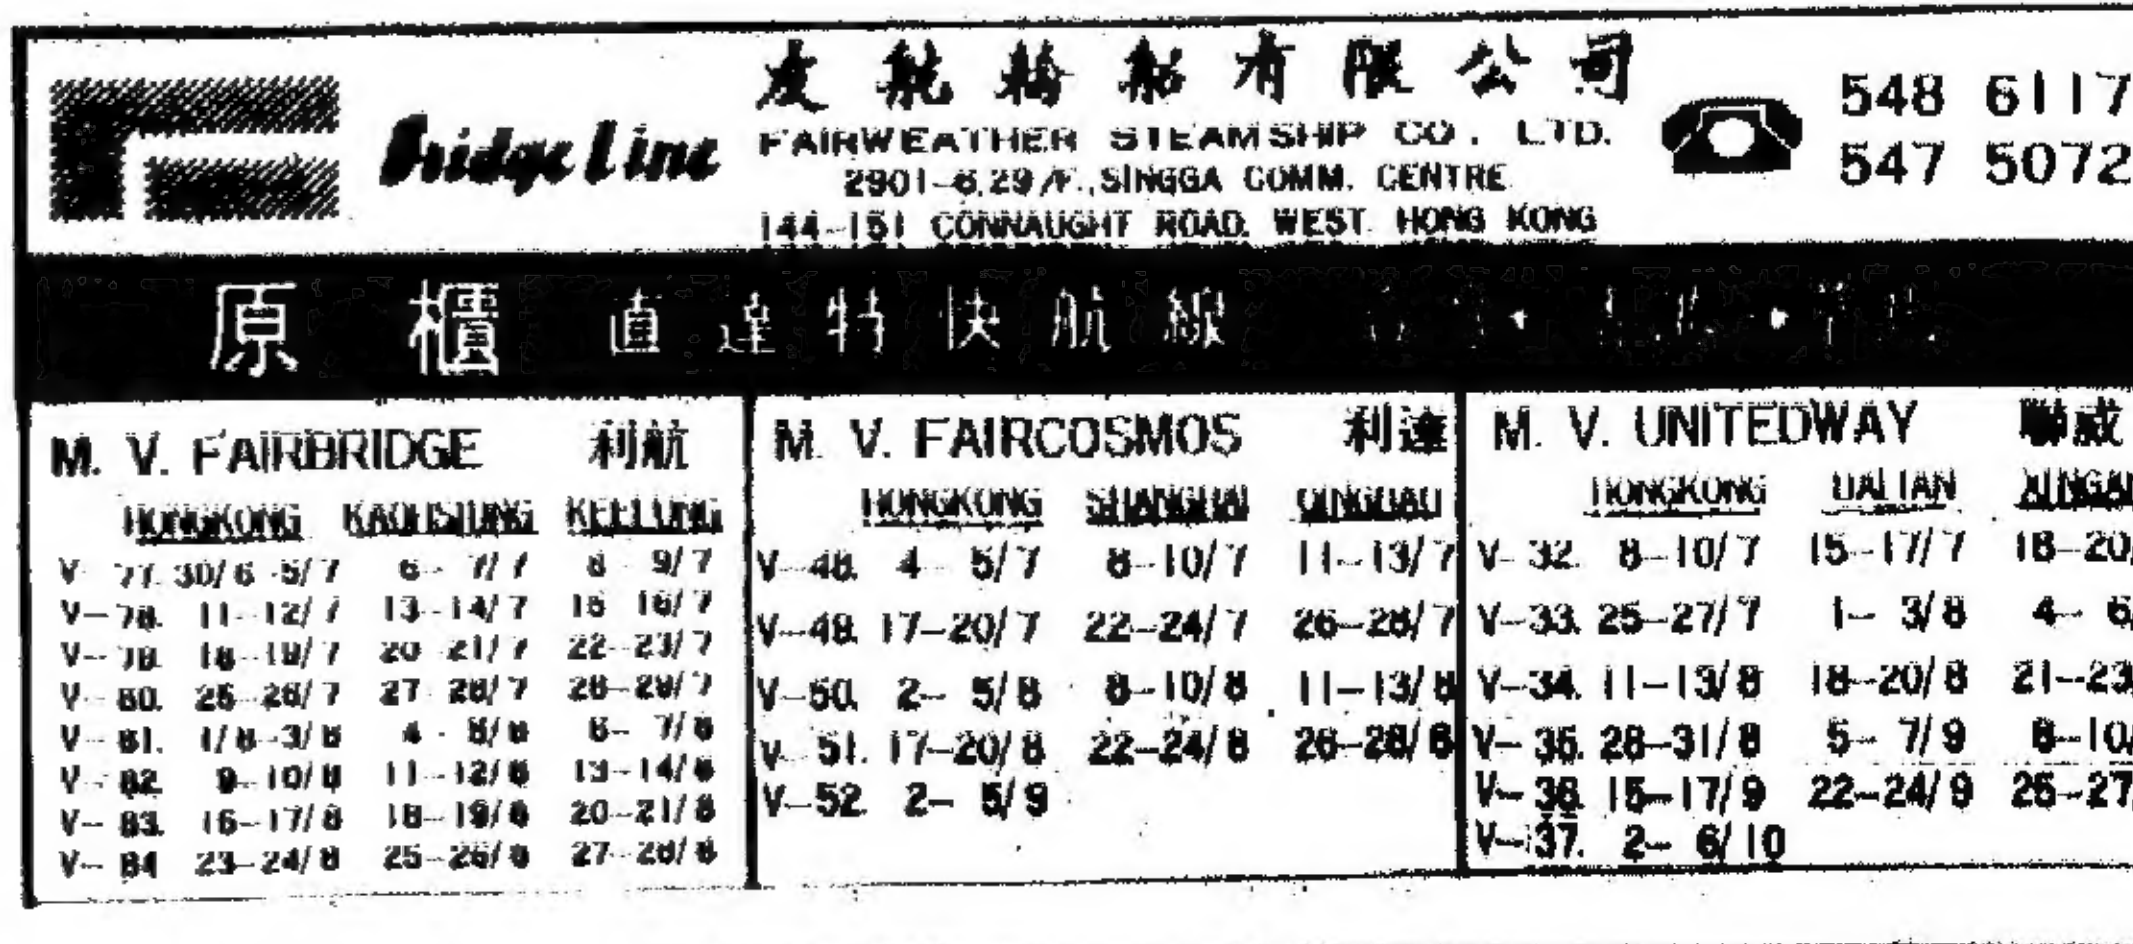 友航輪船有限公司
Bridge Line
FAIRWEATHER STEAMSHIP CO. LTD.
2901-6.29/F., SINGGA COMM. CENTRE
144-151 CONNAUGHT ROAD. WEST. HONG KONG
548 6117
547 5072
原櫃直達特快航線
M. V. FAIRBRIDGE 利航
HONGKONG KAOHSIUNG KEELUNG
V- 77. 30/6-5/7 6- 7/7 8- 9/7
V-78. 11-12/7 13-14/7 15-16/7
V-79. 18-19/7 20-21/7 22-23/7
V-80. 25-26/7 27-28/7 28-29/7
V-81. 1/8-3/8 4-5/8 6- 7/8
V-82. 9-10/8 11-12/8 13-14/8
V-83. 16-17/8 18-19/8 20-21/8
V-84 23-24/8 25-26/8 27-28/8
M. V. FAIRCOSMOS 利達
HONGKONG SHANGHAI QINGDAO
V-48. 4- 5/7 8-10/7 11-13/7
V-49. 17-20/7 22-24/7 26-28/7
V-50. 2- 5/8 8-10/8 11-13/8
V-51. 17-20/8 22-24/8 26-28/8
V-52. 2- 5/9
M. V. UNITEDWAY 聯威
HONGKONG DALIAN XINGAN
V-32. 8-10/7 15-17/7 18-20/
V-33. 25-27/7 1- 3/8 4- 6/
V-34. 11-13/8 18-20/8 21-23/
V-35. 28-31/8 5- 7/9 8-10/
V-36. 15-17/9 22-24/9 25-27/
V-37. 2- 6/10